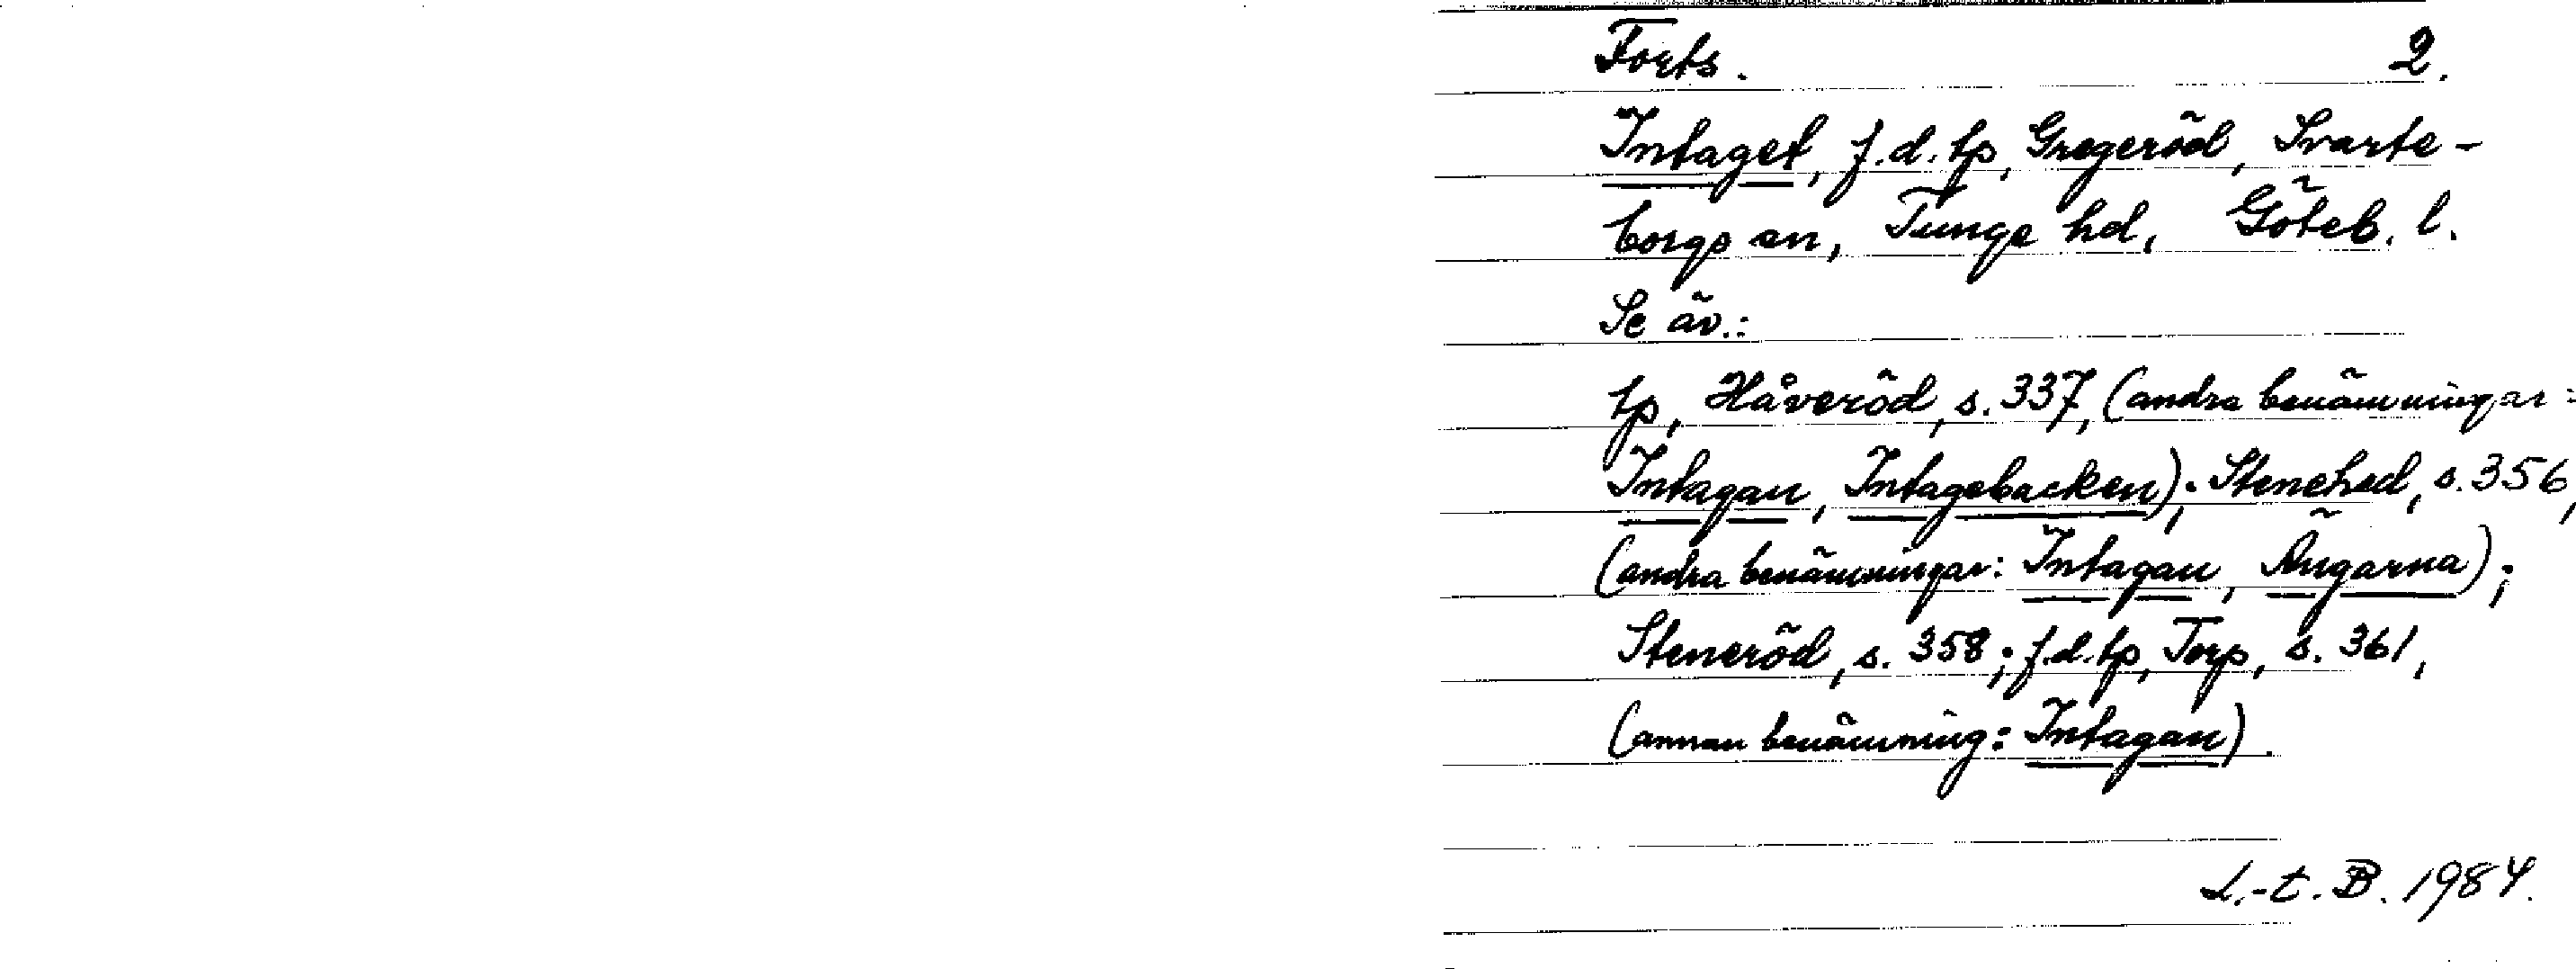 Forts. 2.
Intaget, f.d. tp, Gregeröd, Svarte-
borgs sn, Tunge hd, Göteb. l.
Se äv.:
tp, Håveröd, s. 337, (andra benämningar:
Intagan, Intagebacken); Stenehed, s. 356,
(andra benämningar: Intagan, Ängarna);
Steneröd, s. 358; f.d. tp, Torp, s. 361,
(annan benämning: Intagan).
L.-t. B. 1984.